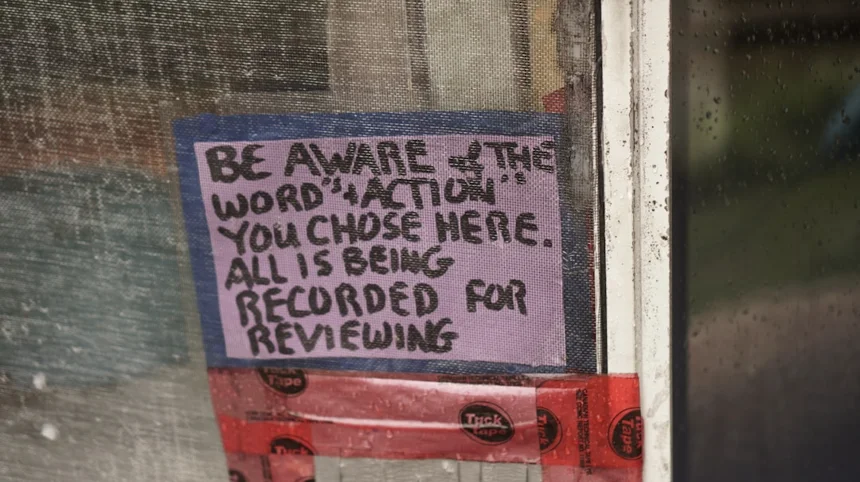 BE AWARE of THE
WORD" + ACTION"
YOU CHOSE HERE.
ALL IS BEING
RECORDED FOR
REVIEWING
Tuck
Tape
Tuck
Tape
Tuck
Tape